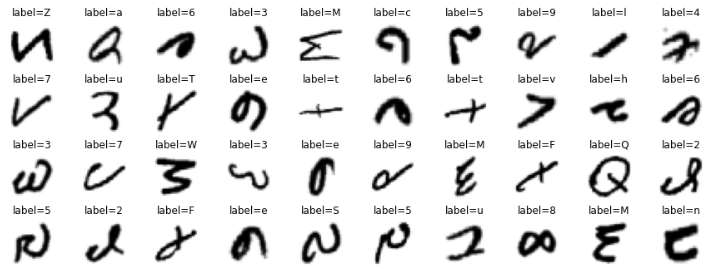 label=Z label=a label=6 label=3 label=M label=c label=5 label=9 label=l label=4
label=7 label=u label=T label=e label=t label=6 label=t label=v label=h label=6
label=3 label=7 label=W label=3 label=e label=9 label=M label=F label=Q label=2
label=5 label=2 label=F label=e label=S label=5 label=u label=8 label=M label=n